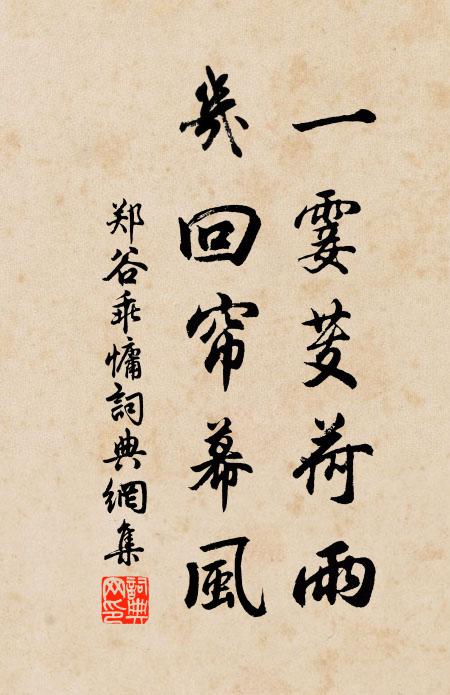 一霎芰荷雨
幾回帘幕風
郑谷乖慵詞典網集
詞典网印